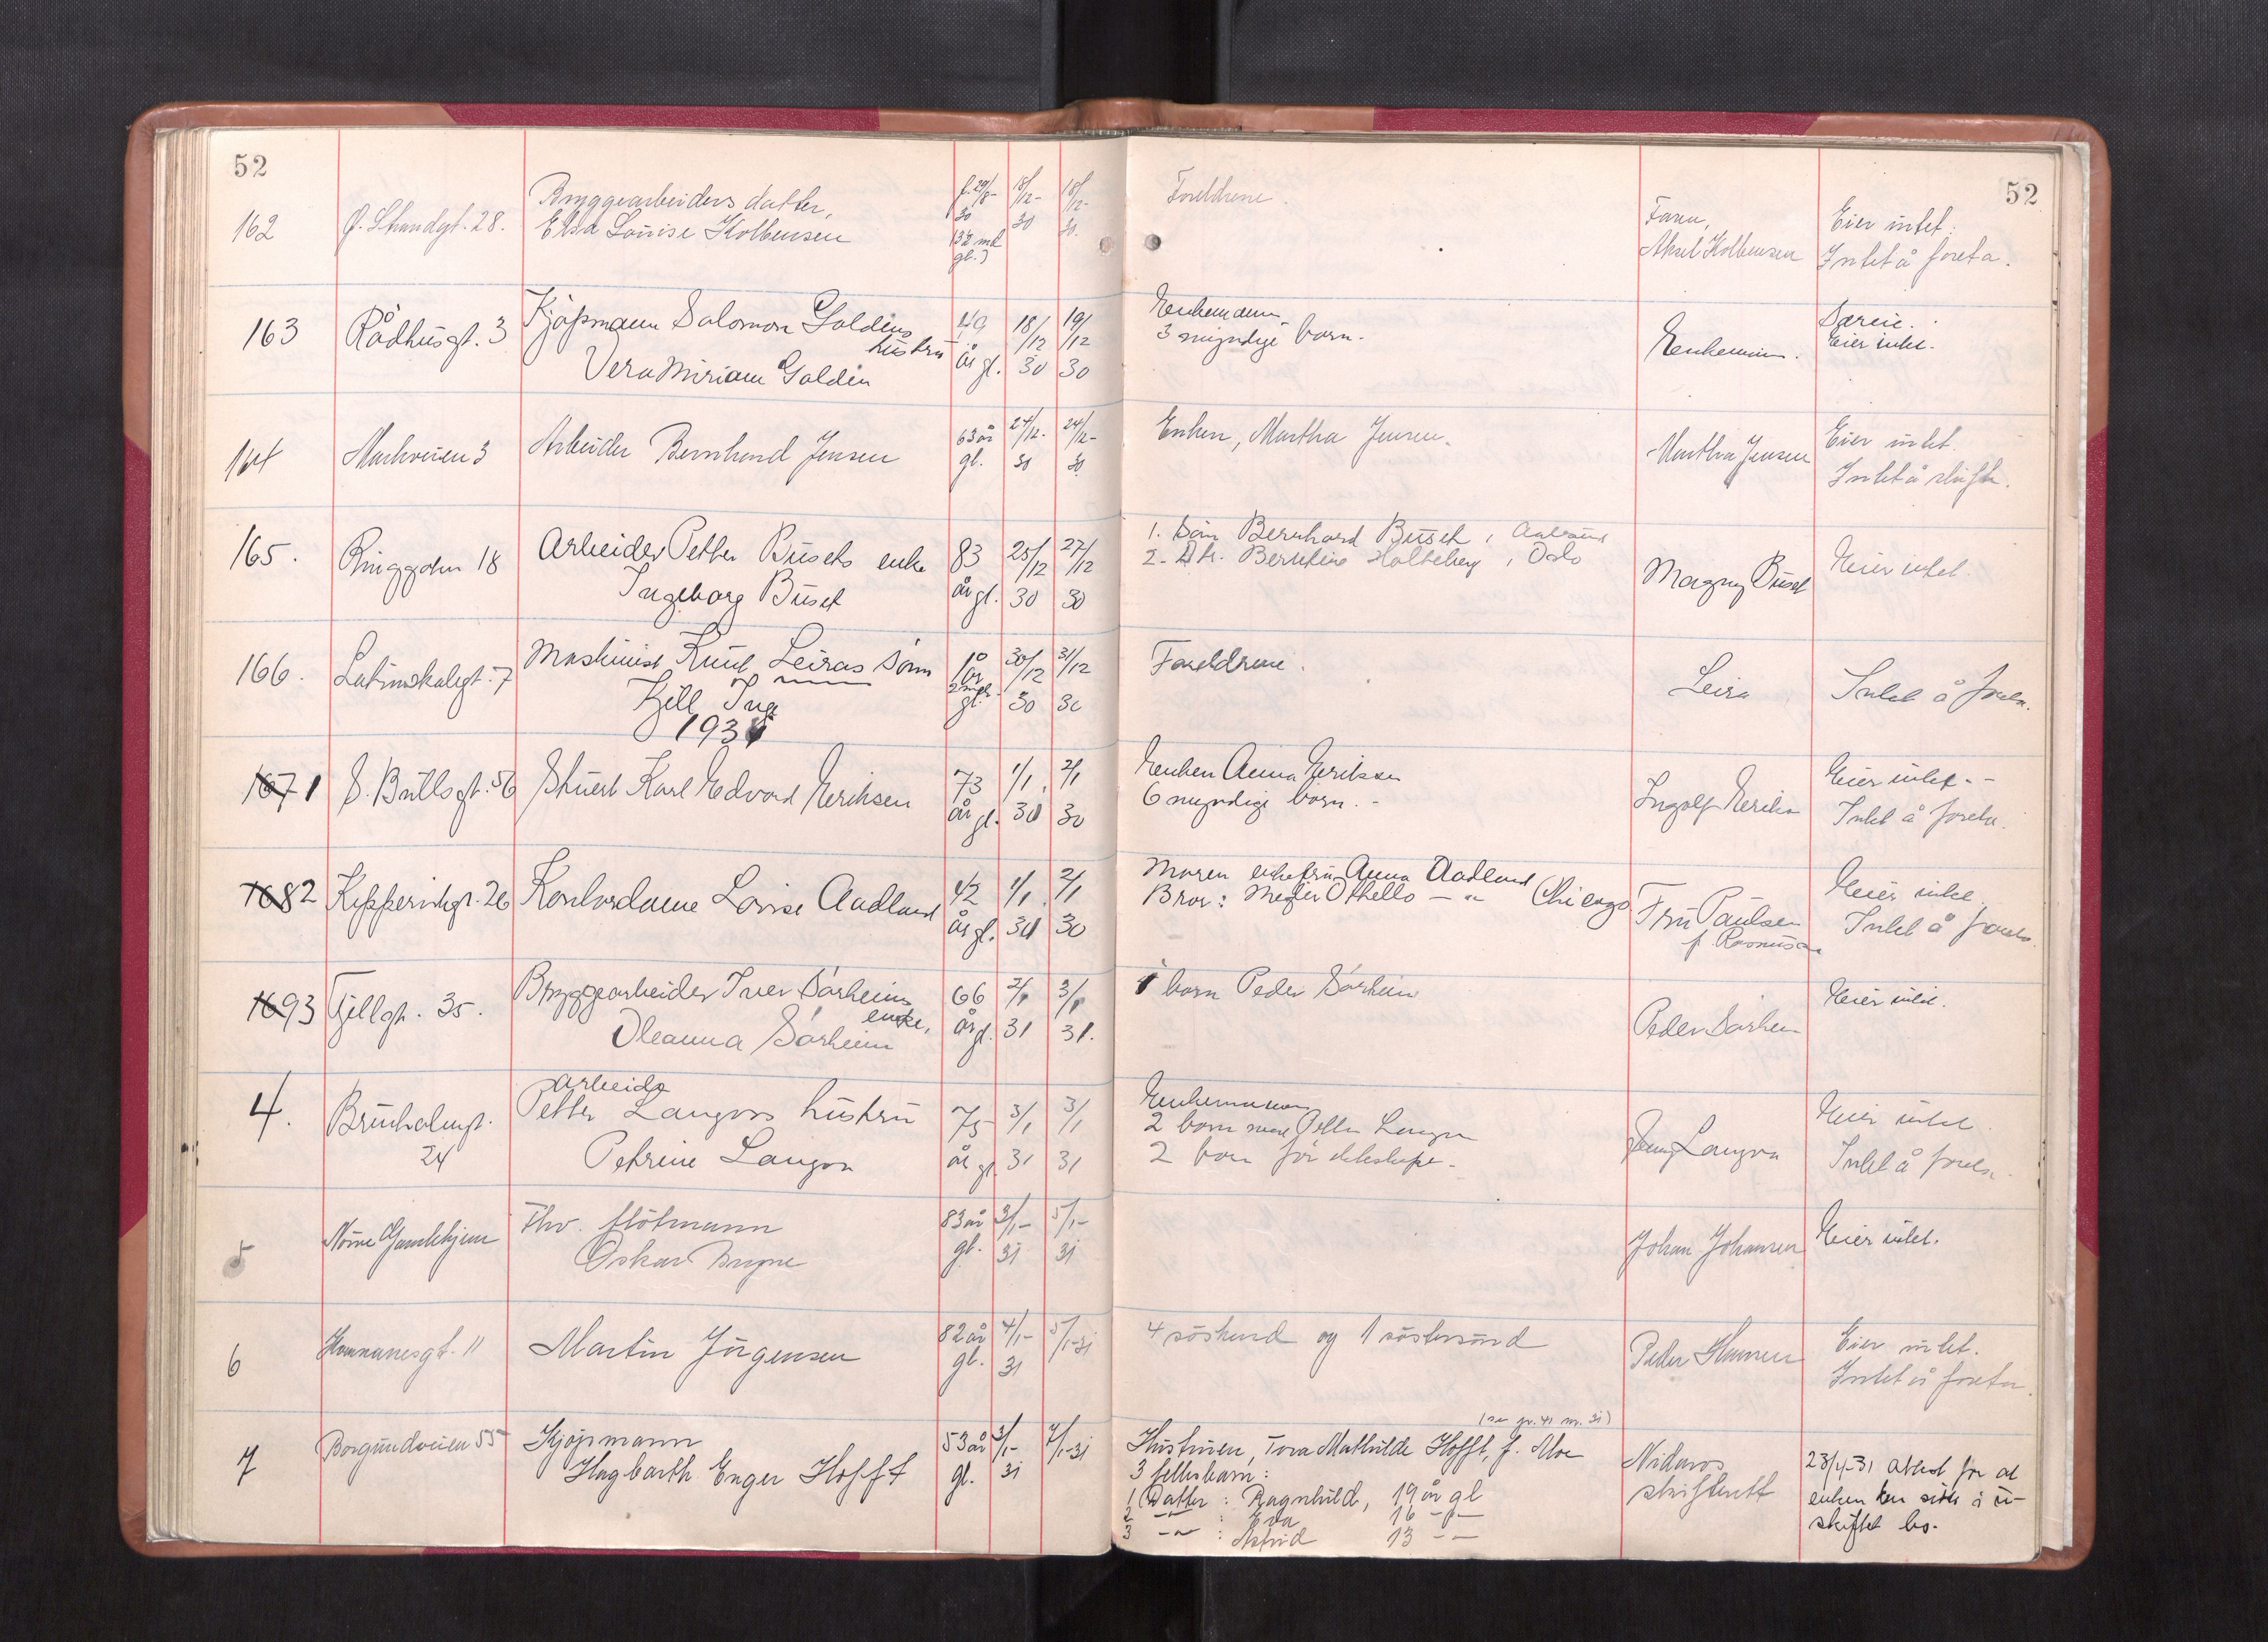 52
52
162
Ø. Strandgt. 28.
Bryggearbeiders datter,
Elsa Louise Kolbensen
f. 29/8-
30
(3½ md.
gl.)
18/12-
30
18/12-
30.
Foreldrene.
Faren,
Aksel Kolbensen
Eier intet.
Intet å foreta.
163
Rådhusgt. 3
Kjøpmann Salomon Goldins
hustru
Vera Miriam Goldin
49
år gl.
18/12
30
19/12
30
Enkemann
3 myndige barn.
Enkemann.
Særeie.
Eier intet.
164
Markveien 3
Arbeider Bernhard Jensen
63 år
gl.
24/12-
30
24/12-
30
Enken, Martha Jensen.
Martha Jensen
Eier intet.
Intet å skifte.
165.
Ringgaten 18
Arbeider Petter Busets enke
Ingeborg Buset
83
år gl.
25/12
30
27/12
30
1. Sön Bernhard Buset i Aalesund
2. Dtr. Berntine Holteberg, Oslo
Magny Buset
Eier intet.
166.
Latinskolegt. 7
Maskinist Knut Leiras sönn
Kjell Inge
1 år
2 mdr.
gl.
30/12
30
31/12
30
Foreldrene.
Leira
Intet å foreta.
1931
167 1
S. Bullsgt. 56
Stuert Karl Edvard Eriksen
73
år gl.
1/1.
31
2/1
30
Enken Anna Eriksen
6 myndige barn.-
Ingolf Eriksen
Eier intet.-
Intet å foreta.
168 2
Kipperviksgt. 26
Kontordame Louise Aadland
42
år gl.
1/1.
31
2/1
30
Moren enkefru Anna Aadland
Bror: Megler Othello - " - Chicago
Fru Paulsen
f. Rasmussen
Eier intet.
Intet å foreta.
169 3
Fjellgt. 35.
Bryggearbeider Iver Sörheims
enke,
Oleanna Sörheim
66
år gl.
2/1
31
3/1
31.
1 barn Peder Sörheim
Peder Sörheim
Eier intet.
4.
Brunholmgt.
24
Arbeider
Petter Langvas hustru
Petrine Langva
75
år gl.
3/1
31
3/1
31
Enkemannen
2 barn med Petter Langva
2 barn för ekteskapet.
Langva
Eier intet.
Intet å foreta.
5
Nöire Gamlehjem
Fhv. flötmann
Oskar Bugne
83 år
gl.
3/1-
31
5/1-
31
Johan Johansen
Eier intet.
6
11
Martin Jörgensen
82 år
gl.
4/1-
31
5/1-31
4 söskend og 1 söstersönd
Peder Hansen
Eier intet.
Intet å foreta.
7
Borgundveien 55
Kjøpmann
Hagbarth Enger Hofft
53 år
gl.
3/1-
31
7/1-31
(se pr. 41 nr. 31)
Hustruen, Tora Mathilde Hofft, f. Moe
3 fellesbarn:
1 Datter: Ragnhild, 19 år gl
2 -"- : Eva 16 -"-
3 -"- : Astrid 13 -"-
Nidaros
skifterett
23/4-31 attest for at
enken kan sitte i u-
skiftet bo.